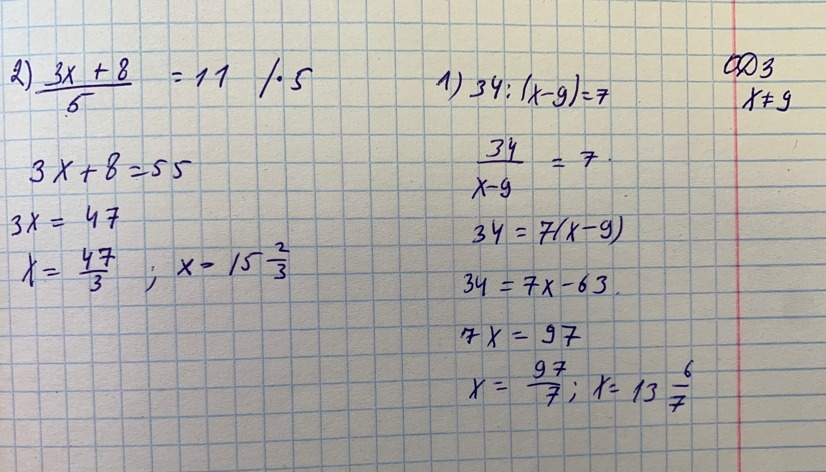 2) (3x + 8)/5 = 11 /·5
3x + 8 = 55
3x = 47
x = 47/3 ; x = 15 2/3
1) 34 : (x-9) = 7
34/(x-9) = 7
34 = 7(x-9)
34 = 7x - 63
7x = 97
x = 97/7 ; x = 13 6/7
ОДЗ
x ≠ 9